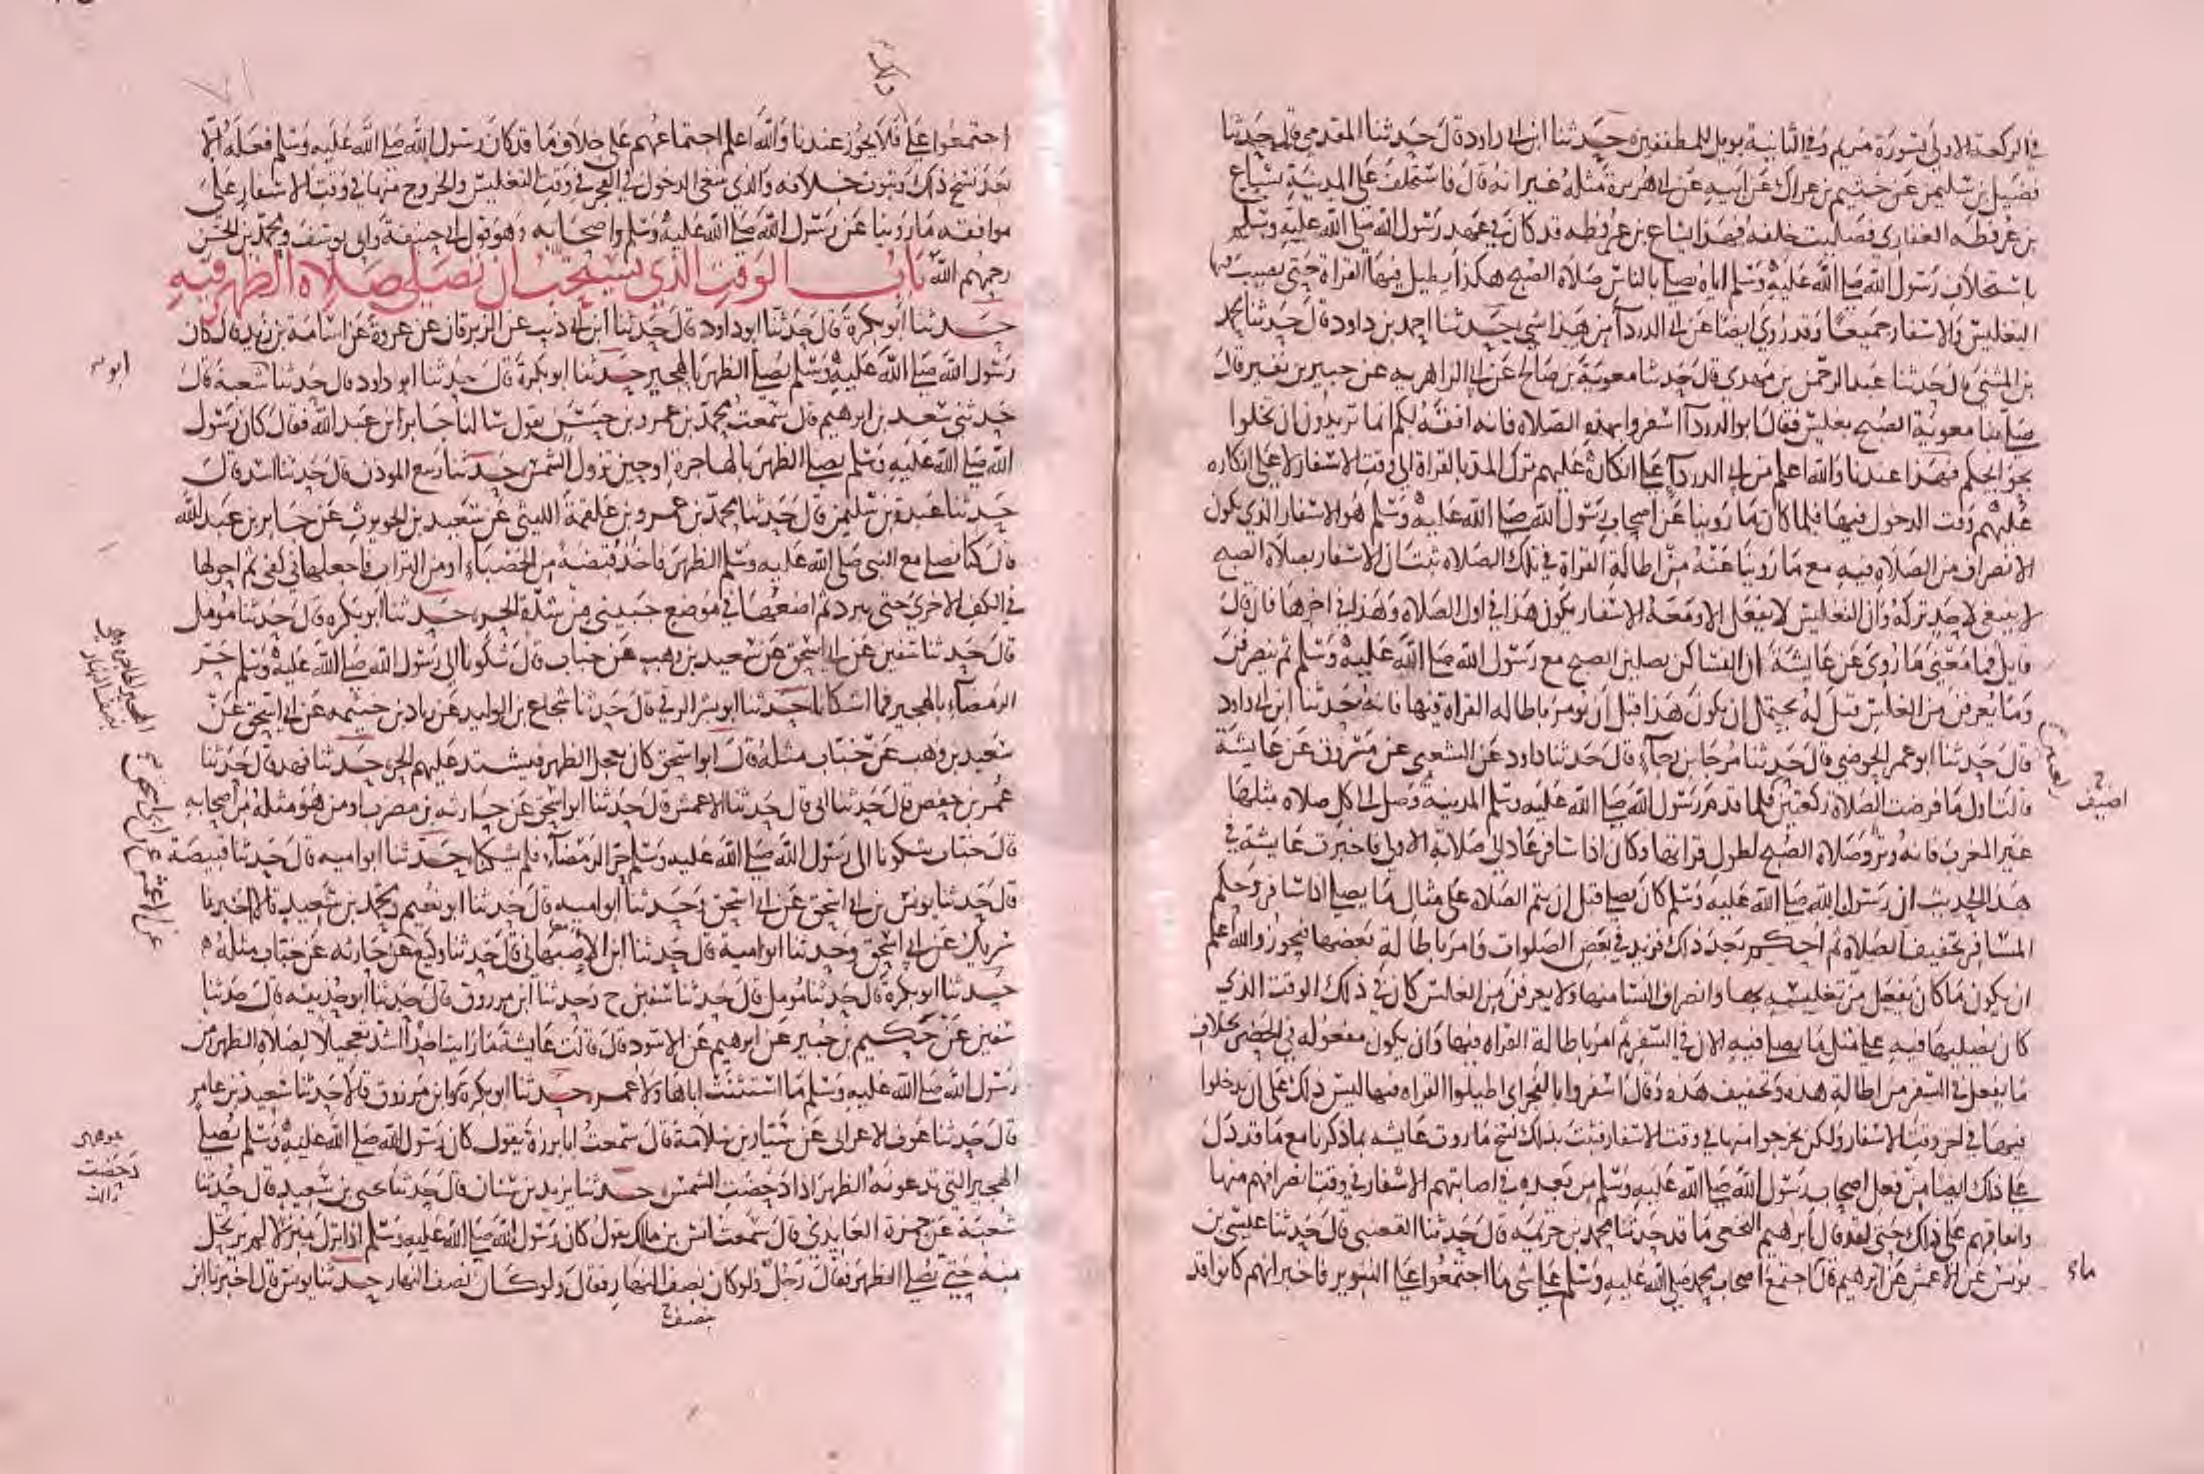 في الركعة الاولى بسورة مريم وفي الثانية بويل للمطففين حدثنا ابن ابي داود قال حدثنا المقدمي قال حدثنا
فضيل بن سليمن عن خثيم بن عراك عن ابيه عن ابي هريرة مثله غير انه قال فاستخلف على المدينة سباع
بن عرفطه الغفاري فصليت خلفه فهذا سباع بن عرفطه قد كان في عهد رسول الله صلى الله عليه وسلم
باستخلاف رسول الله صلى الله عليه وسلم اياه يصلي بالناس صلاة الصبح هكذا يطيل فيها القراة حتى يصيب فيها
التغليس والاسفار جميعا وقد روي ايضا عن ابي الدردآ من هذا شي حدثنا احمد بن داود قال حدثنا محمد
بن المثنى قال حدثنا عبد الرحمن بن مهدي قال حدثنا معوية بن صالح عن ابي الزاهريه عن جبير بن نفير قال
صلى بنا معوية الصبح بغلس فقال ابو الدردآ اسفروا بهذه الصلاه فانه افقه لكم انما تريدون ان تخلوا
بحوايجكم فهذا عندنا والله اعلم من ابي الدردآ على انكاره عليهم ترك المد بالقراة الى وقت الاسفار لا على انكاره
عليهم وقت الدخول فيها فلما كان ما روينا عن اصحاب رسول الله صلى الله عليه وسلم هو الاسفار الذي يكون
الانصراف من الصلاه فيه مع ما روينا عنه من اطالة القراة في تلك الصلاه ثبت ان الاسفار بصلاة الصبح
لا ينبغي لاحد تركه وان التغليس لا يفعل الا ومعه الاسفار يكون هذا في اول الصلاه وهذا في اخرها فان قال
قايل فما معنى ما روي عن عايشة ان النسا كن يصلين الصبح مع رسول الله صلى الله عليه وسلم ثم ينصرفن
وما يعرفن من الغلس قيل له يحتمل ان يكون هذا قبل ان يومر باطالة القراه فيها فانه حدثنا ابن ابي داود
قال حدثنا ابو عمر الحوضي قال حدثنا مرجا بن رجآء قال حدثنا داود عن الشعبي عن مسروق عن عايشة
قالت اول ما فرضت الصلاة ركعتين فلما قدم رسول الله صلى الله عليه وسلم المدينة وصل الى كل صلاه مثلها
غير المغرب فانه وتر وصلاة الصبح لطول قراتها وكان اذا سافر عاد الى صلاته الاولى فاخبرت عايشة في
هذا الحديث ان رسول الله صلى الله عليه وسلم كان يصلي قبل ان يتم الصلاه على مثال ما يصلي اذا سافر وحكم
المسافر تخفيف الصلاه ثم احكم بعد ذلك فزيد في بعض الصلوات وامر باطالة بعضها فيجوز والله اعلم
ان يكون ما كان يفعل من تغليسه بها وانصراف النسا منها ولا يعرفن من الغلس كان في ذلك الوقت الذي
كان يصليها فيه على مثل ما يصلي فيه الان في السفر ثم امر باطالة القراه فيها وان يكون مفعوله في الحضر بخلاف
ما يفعل في السفر من اطالة هذه وتخفيف هذه وقال اسفروا بالفجر اي اطيلوا القراه فيها ليس ذلك على ان يدخلوا
فيها في اخر وقت الاسفار ولكن يخرجوا منها في وقت الاسفار فثبت بذلك نسخ ما روت عايشه بما ذكرنا مع ما قد دل
على ذلك ايضا من فعل اصحاب رسول الله صلى الله عليه وسلم من بعده في اصابتهم الاسفار في وقت انصرافهم منها
واتفاقهم على ذلك حتى لقد قال ابرهيم النخعي ما قد حدثنا محمد بن خزيمه قال حدثنا القعنبي قال حدثنا عيسى بن
يونس عن الاعمش عن ابرهيم قال اجتمع اصحاب محمد صلى الله عليه وسلم على شي ما اجتمعوا على التنوير فاخبر انهم كانوا قد
اصيف
ماء
اجتمعوا على فلا يجوز عندنا والله اعلم اجتماعهم على خلاف ما قد كان رسول الله صلى الله عليه وسلم فعله الا
بعد نسخ ذلك وثبوت خلافه والذي ينبغي الدخول في الفجر في وقت التغليس والخروج منها في وقت الاسفار على
موافقه ما روينا عن رسول الله صلى الله عليه وسلم واصحابه وهو قول ابي حنيفة وابي يوسف ومحمد بن الحسن
رحمهم الله باب الوقت الذي يستحب ان يصلى صلاة الظهر فيه
حدثنا ابو بكرة قال حدثنا ابو داود قال حدثنا ابن ابي ذيب عن الزبرقان عن عروة عن اسامة بن زيد قال كان
رسول الله صلى الله عليه وسلم يصلي الظهر بالهجير حدثنا ابو بكرة قال حدثنا ابو داود قال حدثنا شعبة قال
حدثني سعد بن ابرهيم قال سمعت محمد بن عمرو بن حسن يقول سالنا جابر ابن عبد الله فقال كان رسول
الله صلى الله عليه وسلم يصلي الظهر بالهاجرة او حين تزول الشمس حدثنا ربيع الموذن قال حدثنا اسد قال
حدثنا عبدة بن سليمن قال حدثنا محمد بن عمرو بن علقمة الليثي عن سعيد بن الحويرث عن جابر بن عبد الله
قال كنا نصلي مع النبي صلى الله عليه وسلم الظهر فاخذ قبضة من الحصباء او من التراب فاجعلها في كفي ثم احولها
في الكف الاخرى حتى تبرد ثم اضعها في موضع جبيني من شدة الحر حدثنا ابو بكره قال حدثنا مومل
قال حدثنا سفين عن ابي اسحق عن سعيد بن وهب عن خباب قال شكونا الى رسول الله صلى الله عليه وسلم حر
الرمضآء بالهجير فما اشكانا حدثنا ابو بشر الرقي قال حدثنا شجاع بن الوليد عن زياد بن خيثمه عن ابي اسحق عن
سعيد بن وهب عن خباب مثله قال ابو اسحق كان يعجل الظهر فيشتد عليهم الحر حدثنا فهد قال حدثنا
عمر بن حفص قال حدثنا ابي قال حدثنا الاعمش قال حدثنا ابو اسحق عن حارثه بن مضرب او من هو مثله من اصحابه
قال خباب شكونا الى رسول الله صلى الله عليه وسلم حر الرمضآء فلم يشكنا حدثنا ابو اميه قال حدثنا قبيصة
قال حدثنا يونس بن ابي اسحق عن ابي اسحق وحدثنا ابو اميه قال حدثنا ابو نعيم ومحمد بن سعيد قالا اخبرنا
شريك عن ابي اسحق وحدثنا ابو امية قال حدثنا ابن الاصبهاني قال حدثنا وكيع عن حارثه عن خباب مثله
حدثنا ابو بكرة قال حدثنا مومل قال حدثنا سفين ح وحدثنا ابن مرزوق قال حدثنا ابو حذيفه قال حدثنا
سفين عن حكيم بن جبير عن ابرهيم عن الاسود قال قالت عايشة ما رايت احدا اشد تعجيلا لصلاة الظهر من
رسول الله صلى الله عليه وسلم ما استثنت اباها ولا عمر حدثنا ابو بكرة وابن مرزوق قالا حدثنا سعيد بن عامر
قال حدثنا عوف الاعرابي عن سيار بن سلامة قال سمعت ابا برزة يقول كان رسول الله صلى الله عليه وسلم يصلي
الهجير التي تدعونه الظهر اذا دحضت الشمس حدثنا يزيد بن سنان قال حدثنا يحيى بن سعيد قال حدثنا
شعبة عن حمزة العايذي قال سمعت انس بن مالك يقول كان رسول الله صلى الله عليه وسلم اذا نزل منزلا لم يرتحل
منه حتى يصلي الظهر فقال رجل ولو كان نصف النهار فقال ولو كان نصف النهار حدثنا يونس قال اخبرنا ابن
بنصف
الهجير الهاجرة وهي
نصف النهار
عن الاعمش عن ابي اسحق
جوهري
دحضت
زالت